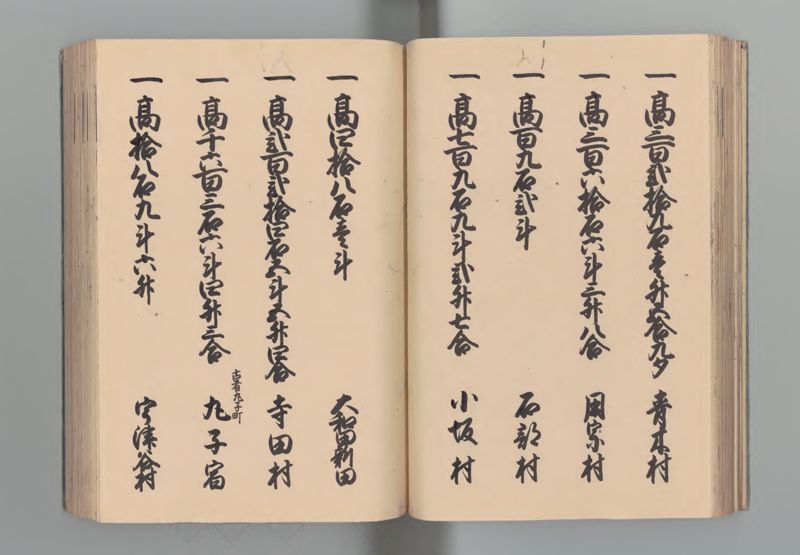 一 高三百弐拾九石壱升五合九夕 青木村
一 高三百六拾石六斗三升八合 用宗村
一 高百九石弐斗 石部村
一 高七百九石九斗弐升七合 小坂村
一 高四拾八石壱斗 大和田新田
一 高弐百弐拾四石五斗五升四合 寺田村
一 高千六百三石六斗四升三合 古者丸子町 丸子宿
一 高拾八石九斗六升 宇津谷村